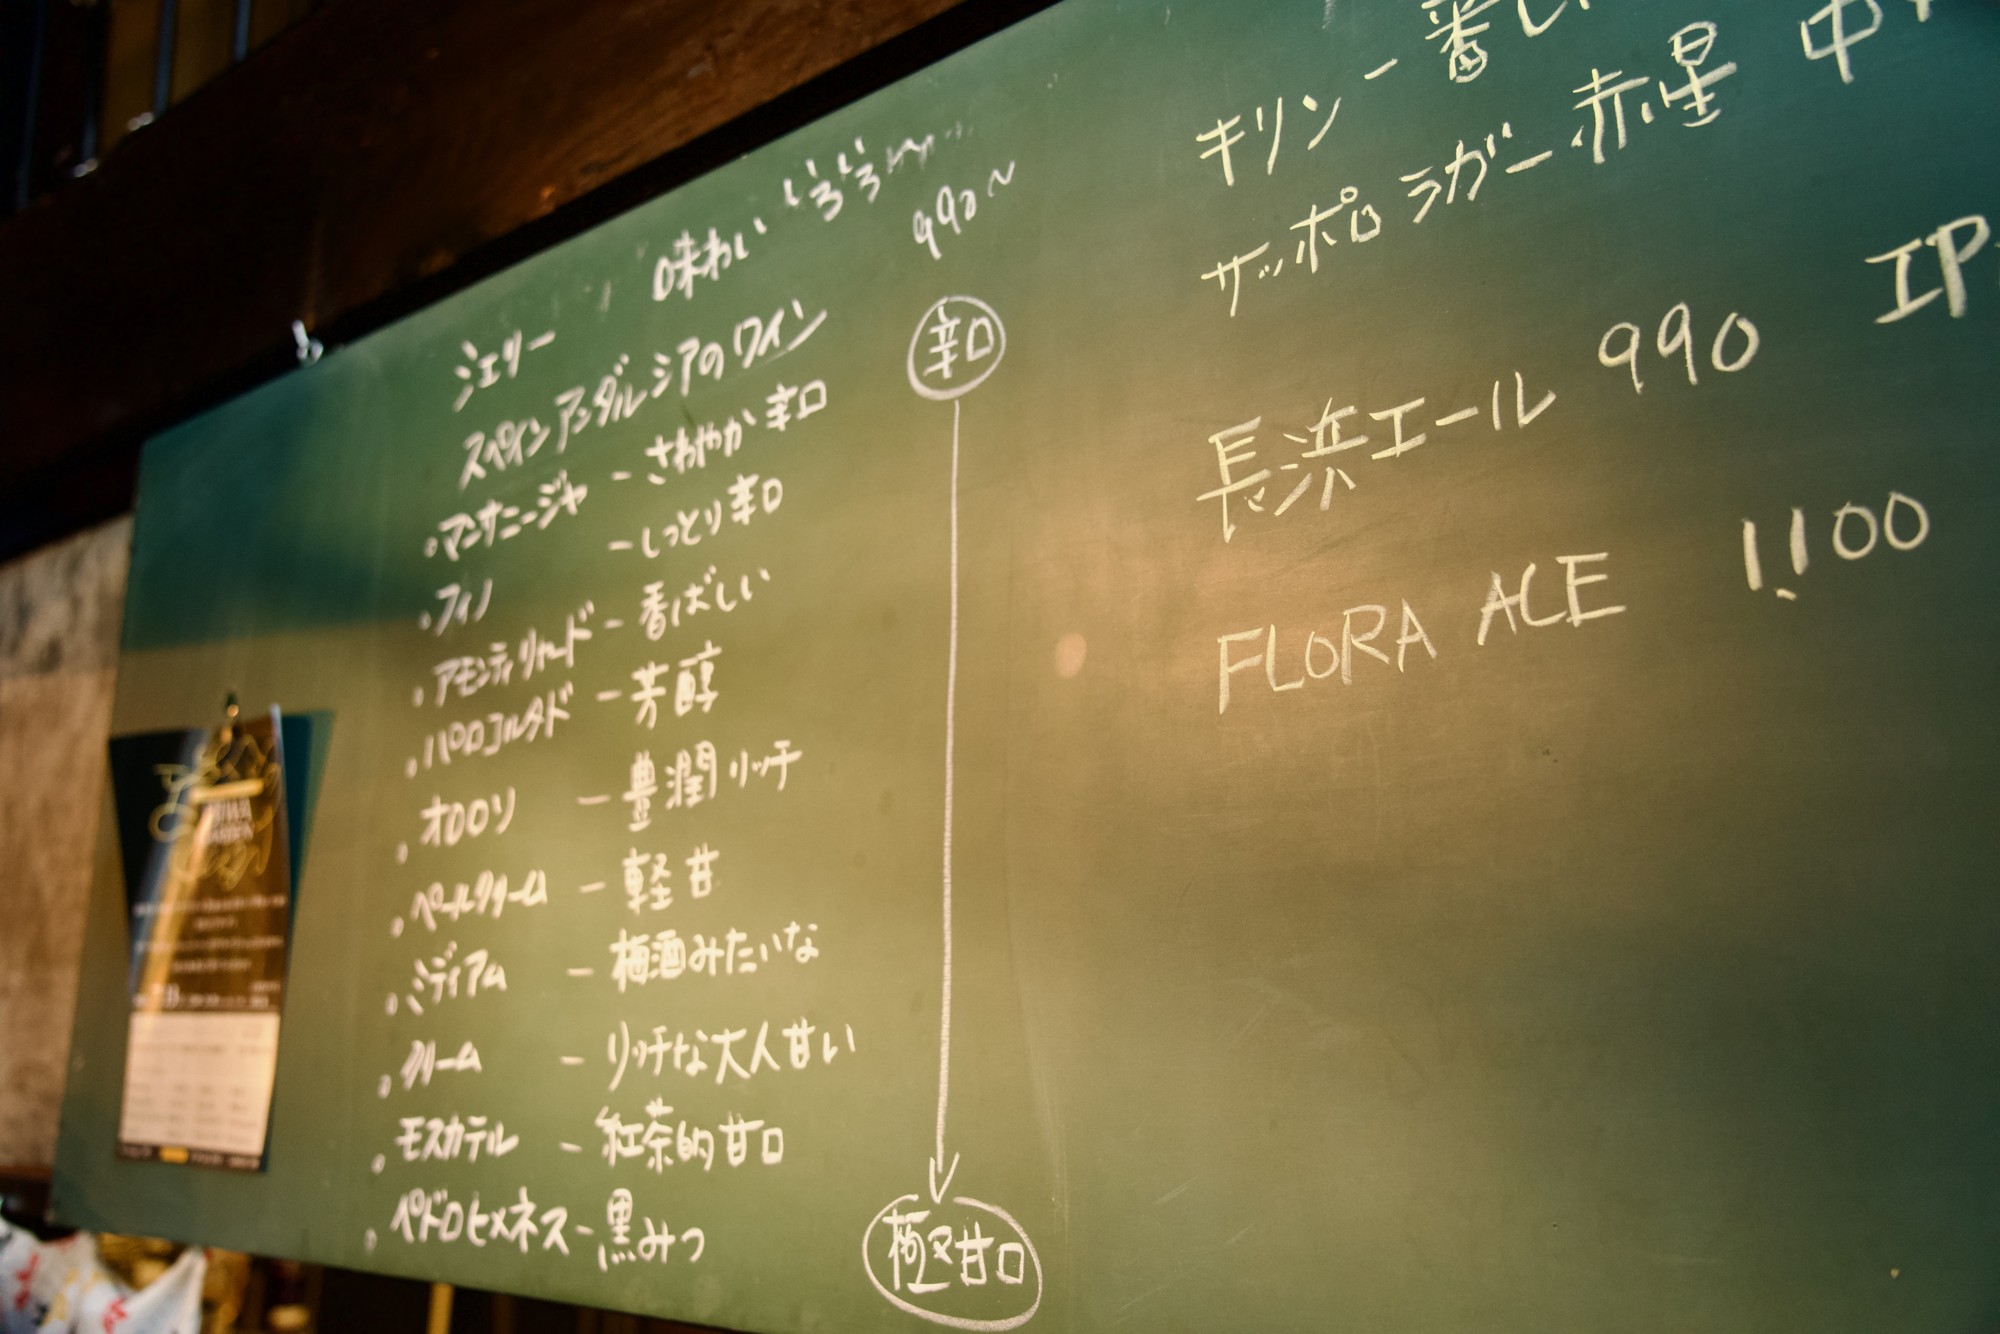 味わいいろいろ
990〜
シェリー
スペインアンダルシアのワイン
辛口
・マンサニージャ ー さわやか辛口
・フィノ ー しっとり辛口
・アモンティリャード ー 香ばしい
・パロコルタド ー 芳醇
・オロロソ ー 豊潤リッチ
・ペールクリーム ー 軽甘
・ミディアム ー 梅酒みたいな
・クリーム ー リッチな大人甘い
・モスカテル ー 紅茶的甘口
・ペドロヒメネス ー 黒みつ
極甘口
キリン 一番し
サッポロラガー赤星 中
長浜エール 990 IP
FLORA ALE 1,100